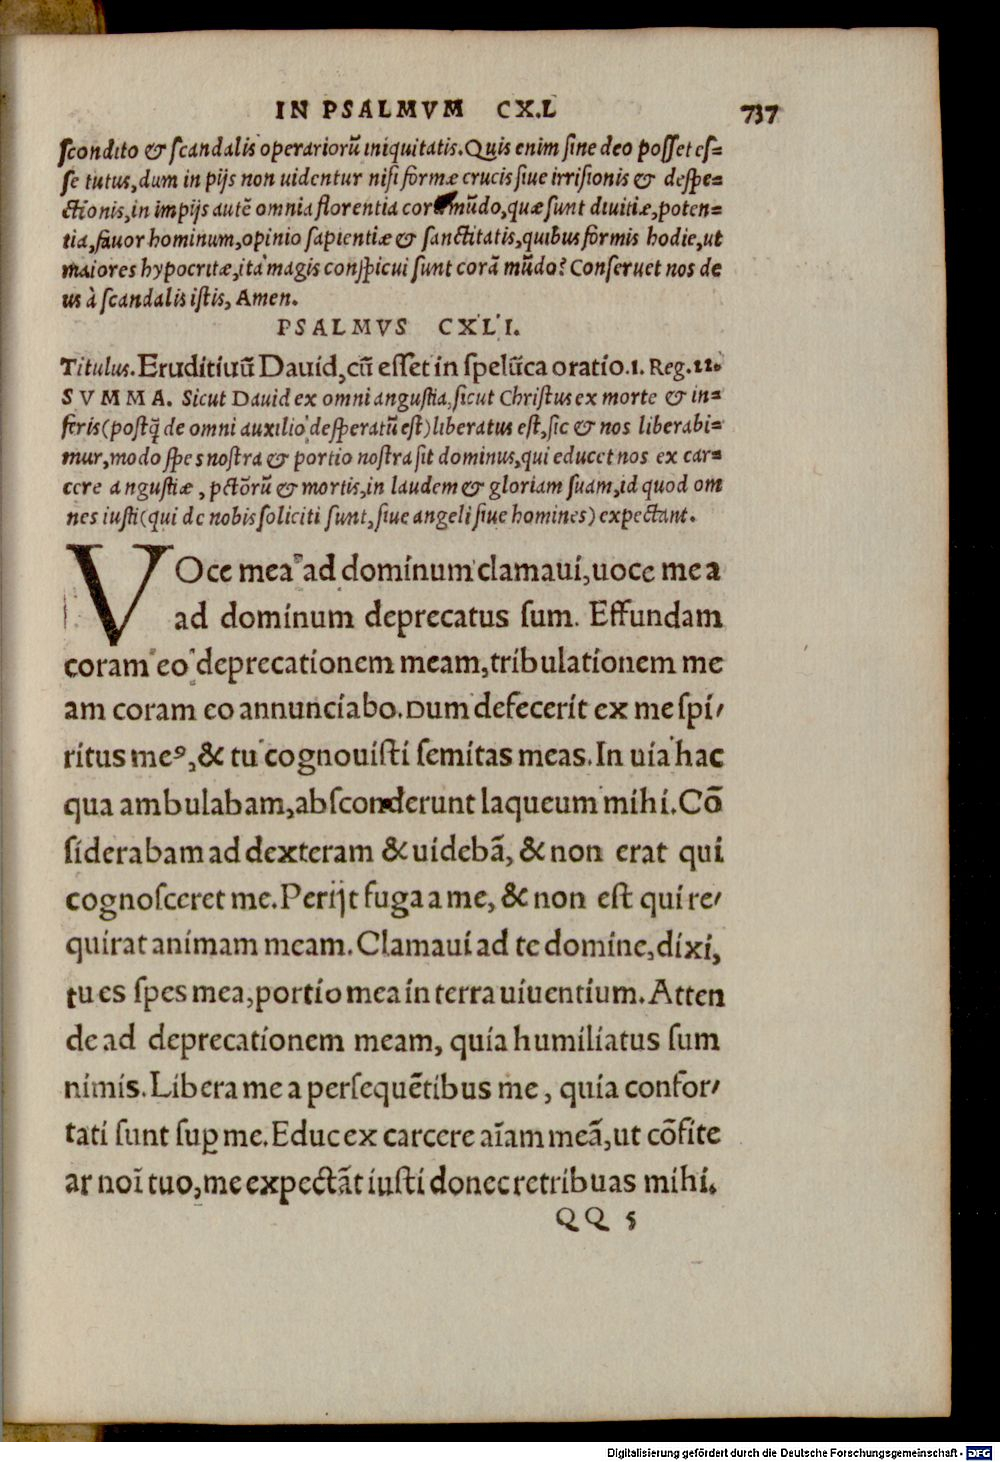 IN PSALMVM CX.L 737
scondito & scandalis operariorũ iniquitatis. Quis enim sine deo posset es=
se tutus, dum in pijs non uidentur nisi formæ crucis siue irrisionis & despe=
ctionis, in impijs autẽ omnia florentia mũdo, quæ sunt diuitiæ, poten=
tia, fauor hominum, opinio sapientiæ & sanctitatis, quibus formis hodie, ut
maiores hypocritæ, ita magis conspicui sunt corã mũdo? Conseruet nos de
us à scandalis istis, Amen.
PSALMVS CXLI.
Titulus. Eruditiuũ Dauid, cũ esset in spelũca oratio. 1. Reg. 22.
SVMMA. Sicut Dauid ex omni angustia, sicut Christus ex morte & in=
feris (postq̃ de omni auxilio desperatũ est) liberatus est, sic & nos liberabi=
mur, modo spes nostra & portio nostra sit dominus, qui educet nos ex car=
cere angustiæ, pctõrũ & mortis, in laudem & gloriam suam, id quod om
nes iusti (qui de nobis soliciti sunt, siue angeli siue homines) expectant.
VOce mea ad dominum clamaui, uoce mea
ad dominum deprecatus sum. Effundam
coram eo deprecationem meam, tribulationem me
am coram eo annunciabo. Dum defecerit ex me spi/
ritus meꝰ, & tu cognouisti semitas meas. In uia hac
qua ambulabam, absconderunt laqueum mihi. Cõ
siderabam ad dexteram & uidebã, & non erat qui
cognosceret me. Perijt fuga a me, & non est qui re/
quirat animam meam. Clamaui ad te domine, dixi,
tu es spes mea, portio mea in terra uiuentium. Atten
de ad deprecationem meam, quia humiliatus sum
nimis. Libera me a persequẽtibus me, quia confor/
tati sunt suꝑ me. Educ ex carcere aĩam meã, ut cõfite
ar noĩ tuo, me expectãt iusti donec retribuas mihi.
QQ 5
Digitalisierung gefördert durch die Deutsche Forschungsgemeinschaft - DFG